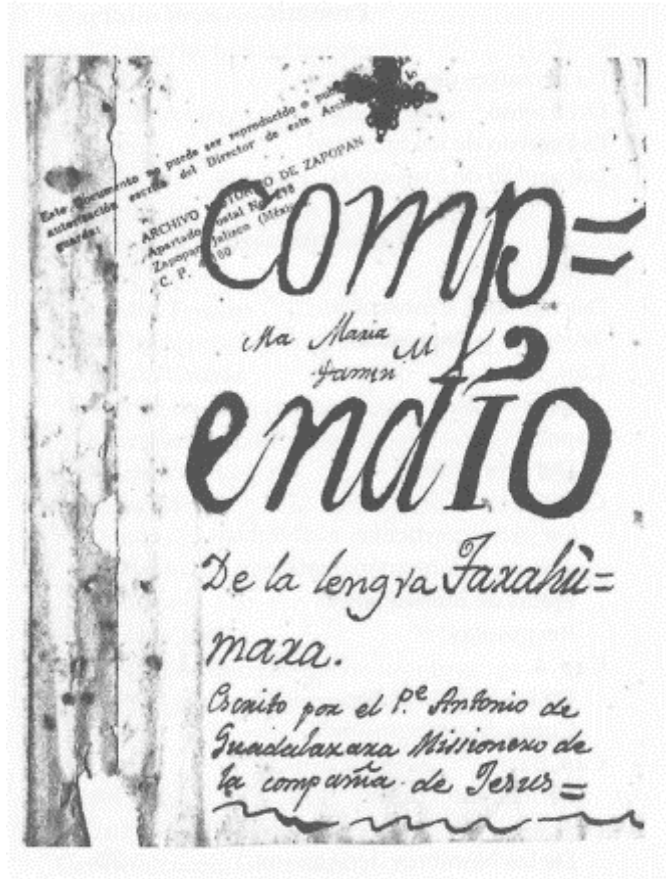 Este documento no puede ser reproducido o
autorización escrita del Director de este
guarda:
ARCHIVO HISTORICO DE ZAPOPAN
Apartado Postal No.
Zapopan, Jalisco
C. P.
Comp=
Ma Maria M
endio
De la lengva Taxahù=
maxa.
Escrito por el P.e Antonio de
Guadalaxaxa Missionexo de
la compañia de Jesus=